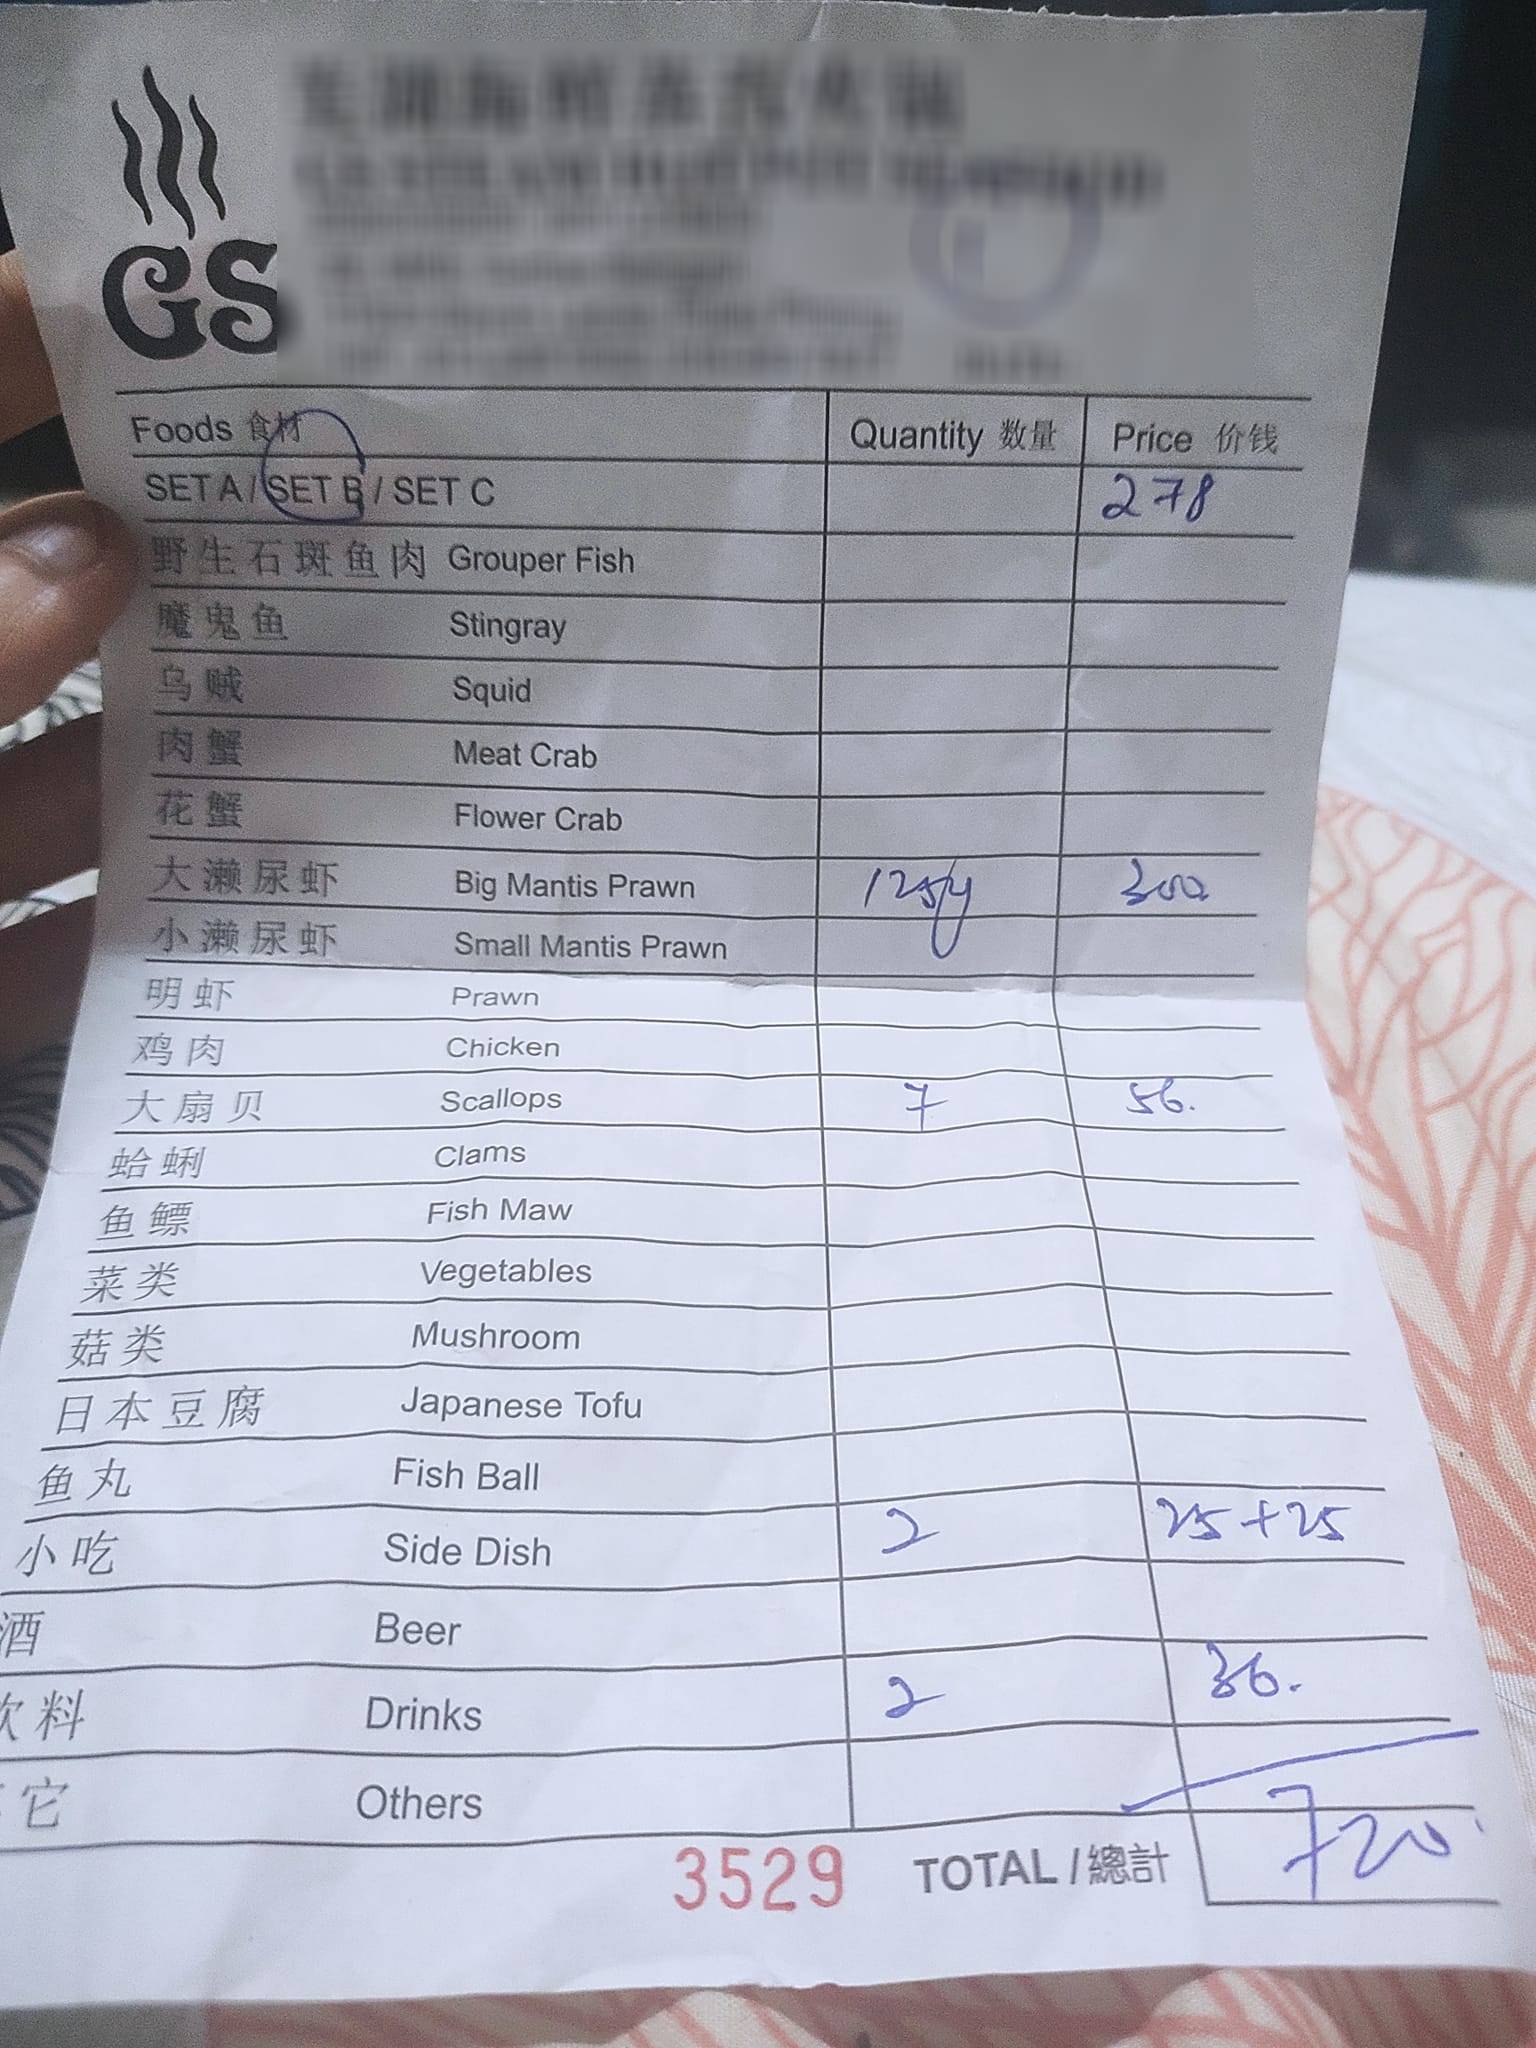 GS
Foods 食材 Quantity 数量 Price 价钱
SET A / SET B / SET C 278
野生石斑鱼肉 Grouper Fish
魔鬼鱼 Stingray
乌贼 Squid
肉蟹 Meat Crab
花蟹 Flower Crab
大濑尿虾 Big Mantis Prawn 300
小濑尿虾 Small Mantis Prawn
明虾 Prawn
鸡肉 Chicken
大扇贝 Scallops 7 56.
蛤蜊 Clams
鱼鳔 Fish Maw
菜类 Vegetables
菇类 Mushroom
日本豆腐 Japanese Tofu
鱼丸 Fish Ball
小吃 Side Dish 2 25+25
酒 Beer
饮料 Drinks 2 36.
它 Others
3529 TOTAL / 總計 720